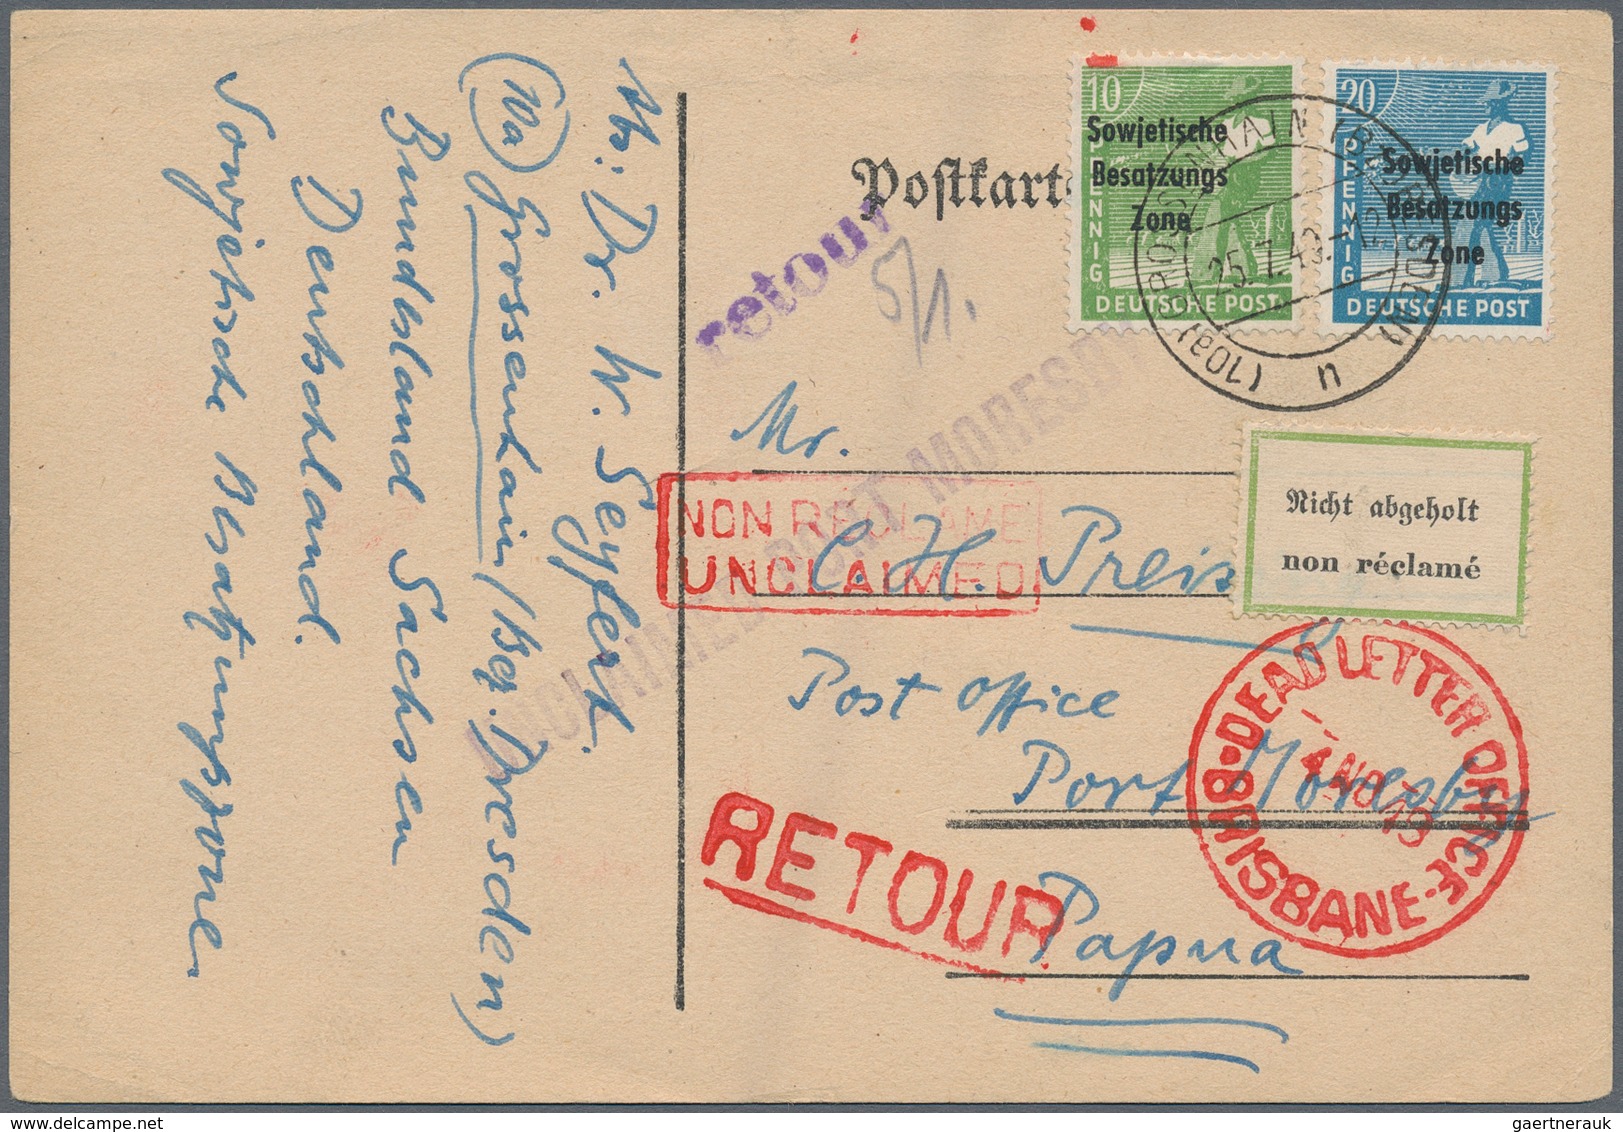 Mr. Dr. W. Seyfert.
(10a) Grossenhain (Bez. Dresden)
Bundesland Sachsen
Deutschland.
Sowjetische Besatzungszone
Postkart
10
Sowjetische
Besatzungs
Zone
PFENNIG
DEUTSCHE POST
20
Sowjetische
Besatzungs
Zone
PFENNIG
DEUTSCHE POST
(10a) GROSSENHAIN (BZ DRESDEN)
n
retour
5/1.
UNCLAIMED PORT MORESBY
Mr.
C. H. Preis
Post Office
Port Moresby
Papua
NON RECLAME
UNCLAIMED
Nicht abgeholt
non réclamé
DEAD LETTER OFFICE
BRISBANE
RETOUR
gaertnerauk @ delcampe.net